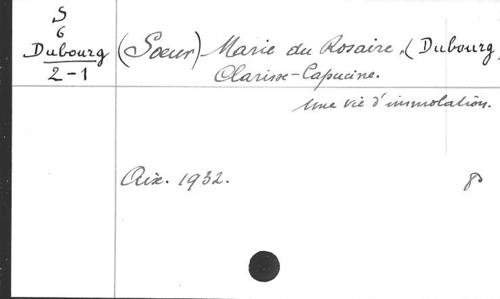 S
6
Dubourg
2-1
(Soeur) Marie du Rosaire, (Dubourg,
Clarisse-Capucine.
Une vie d'immolation.
Aix. 1932.
8°